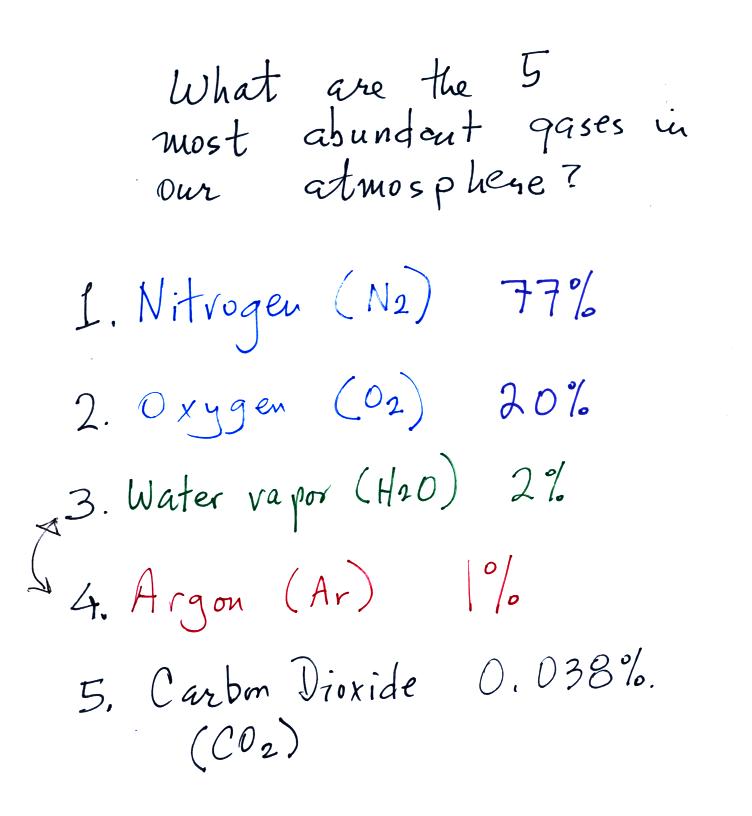 What are the 5
most abundant gases in
our atmosphere?
1. Nitrogen (N2) 77%
2. Oxygen (O2) 20%
3. Water vapor (H2O) 2%
4. Argon (Ar) 1%
5. Carbon Dioxide 0.038%.
(CO2)